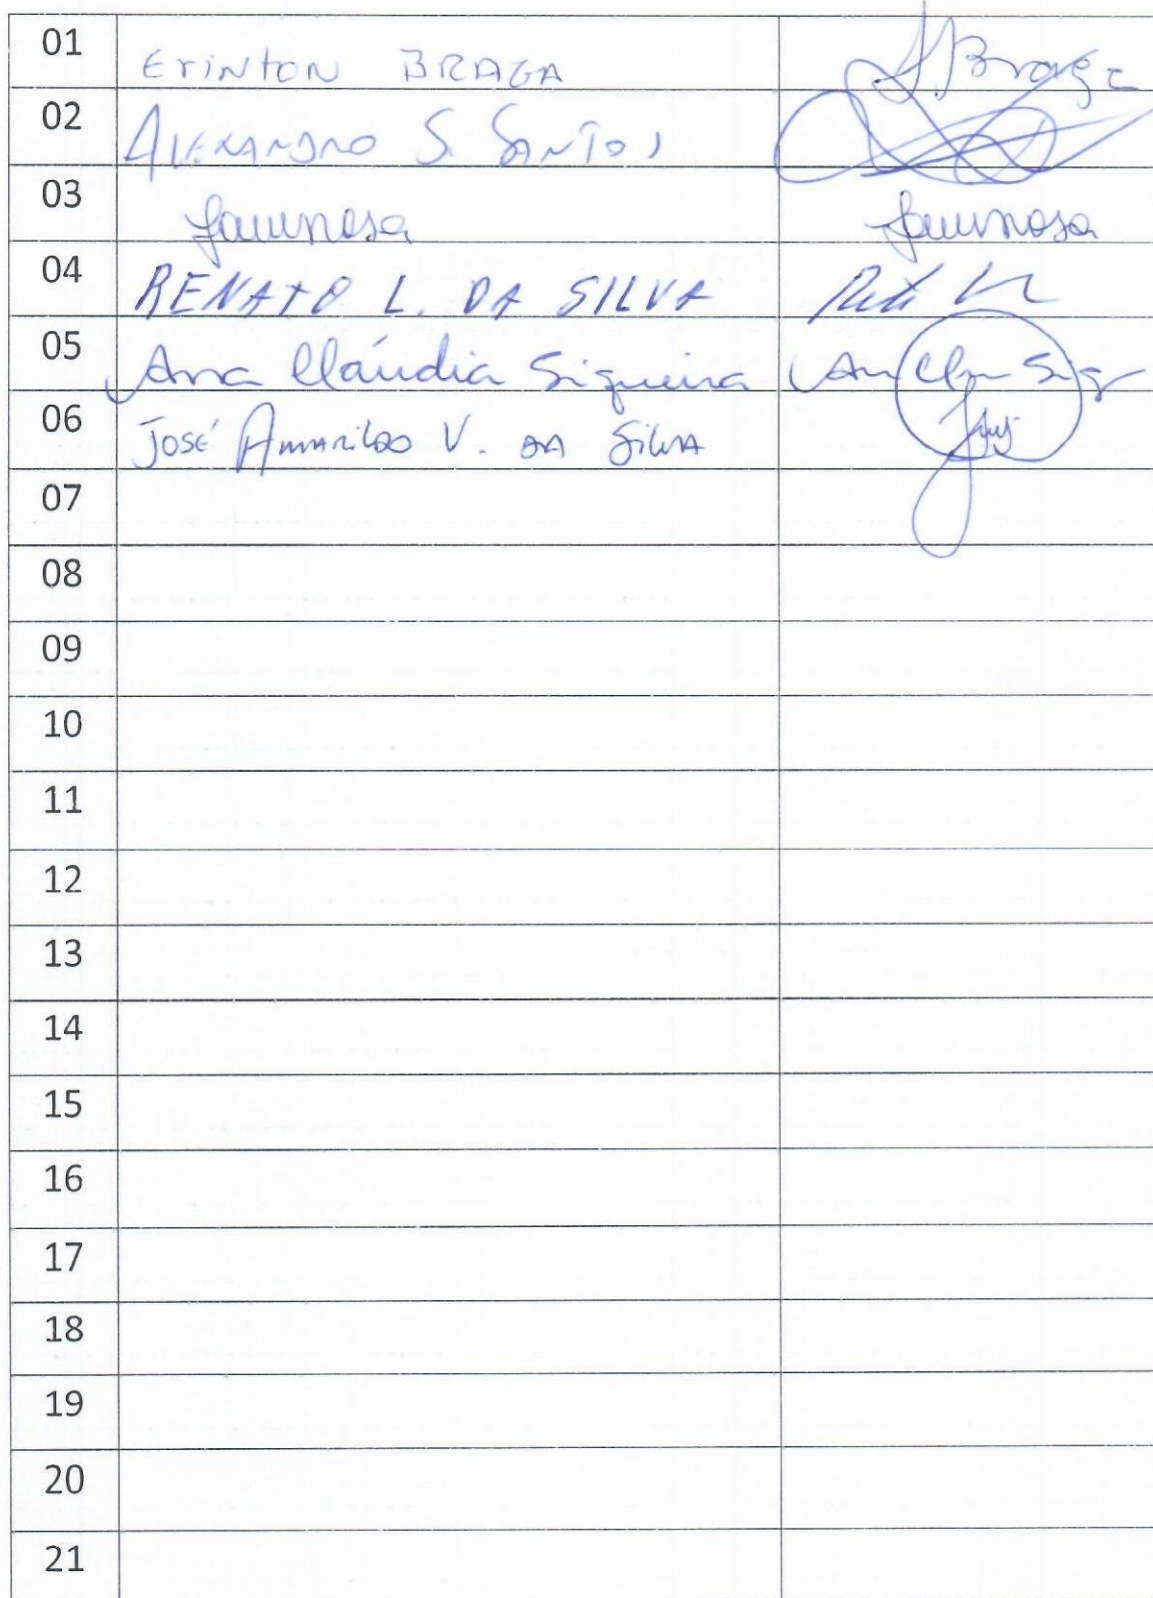 01 Erinton BRAGA Braga
02 ALEXANDRO S. SANTOS
03
04 RENATO L. DA SILVA
05 Ana Cláudia Siqueira
06 José Amarildo V. DA Silva
07
08
09
10
11
12
13
14
15
16
17
18
19
20
21